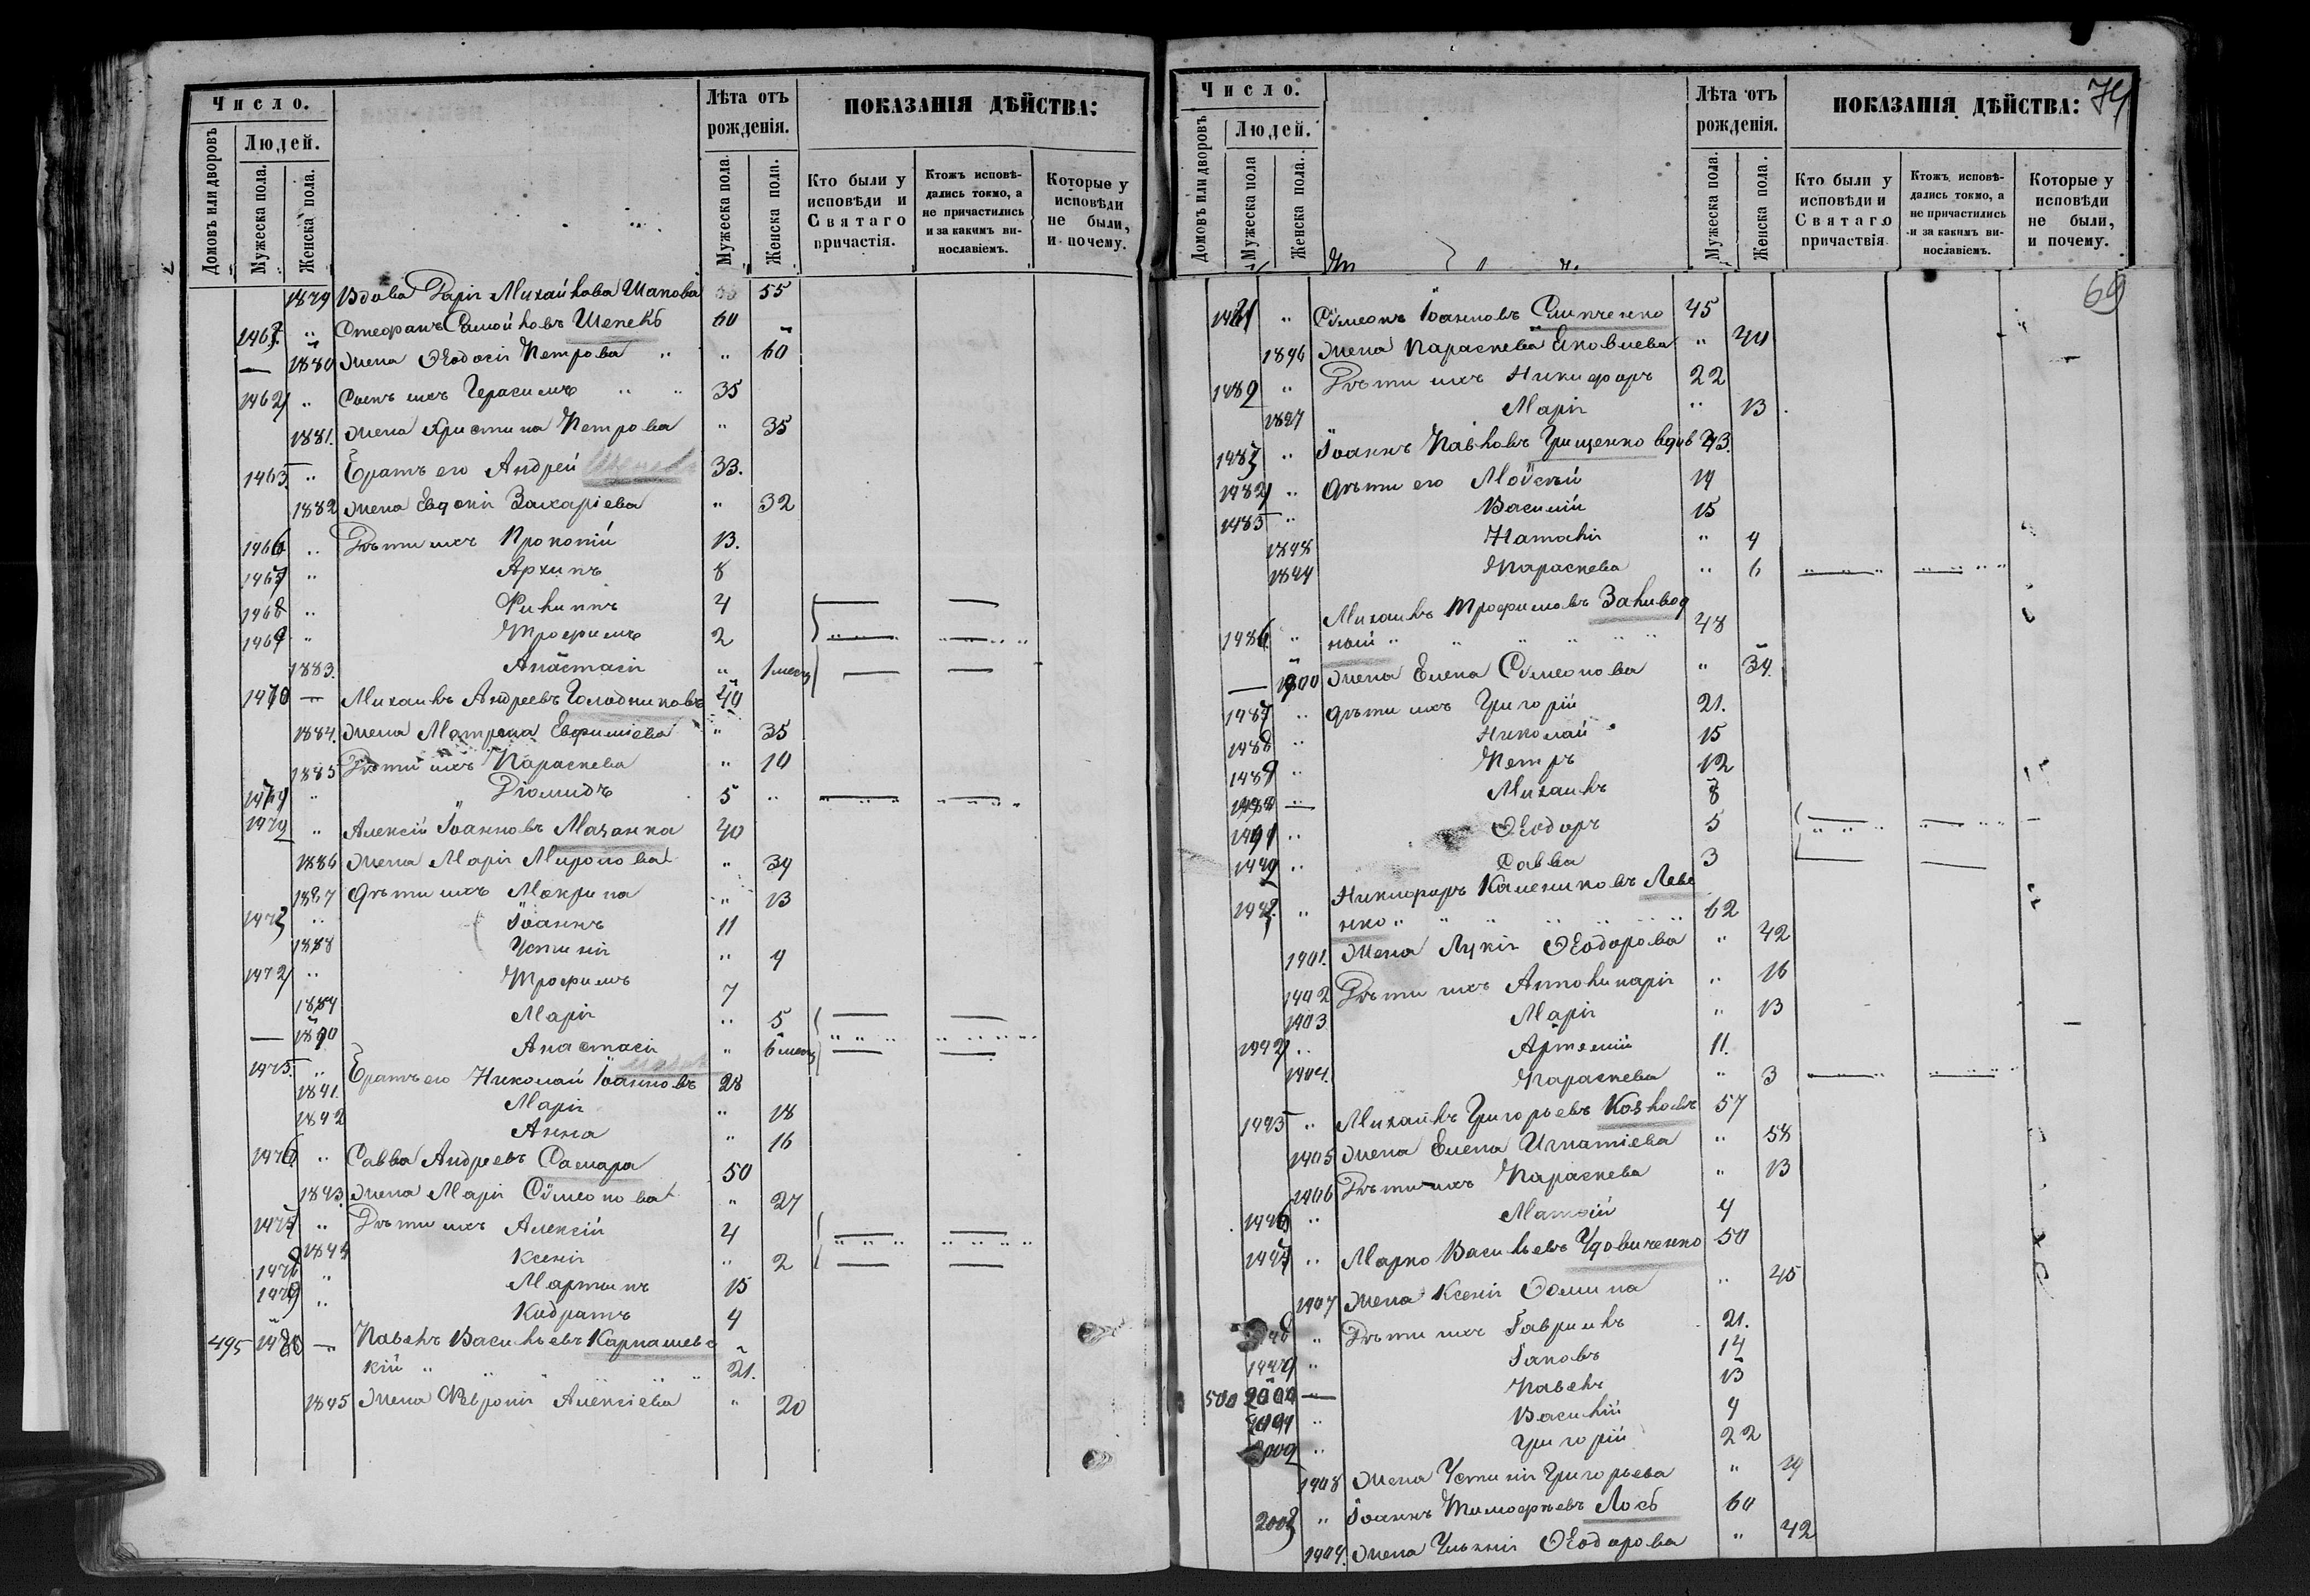 Число.
Людей.
Домовъ или дворовъ
Мужеска пола.
Женска пола.
Лѣта отъ
рожденія.
Мужеска пола.
Женска пола.
ПОКАЗАНІЯ ДѢЙСТВА:
Кто были у
исповѣди и
Святаго
причастія.
Ктожъ исповѣ-
дались токмо, а
не причастились
и за какимъ ви-
нословіемъ.
Которые у
исповѣди
не были,
и почему.
1879 Вдова Дарія Михайлова 55
Стефанъ Самойловъ Шепель 60
1880 жена Ѳеодосія Петрова " 60
Сынъ ихъ Герасимъ 35
1881. жена Христина Петрова " 35
Братъ его Андрей 33.
1882 жена Евдокія Захаріева " 32
1466 " Дѣти ихъ Прокопій 13.
1467 " Архипъ 8
1468 " Филиппъ 4
1469 " Трофимъ 2
1883. Анастасія " 1 месяц
1470 — Михаилъ Андреевъ Голодниковъ 40
1884. жена Матрона Евфиміева " 35
1885 Дѣти ихъ Параскева " 10
Діомидъ 5 "
" Алексій Іоанновъ Мачанка 40
1886 жена Марія Миронова " 34
1887 Дѣти ихъ Макрина " 13
Іоаннъ 11
1888 Устинія " 9
Трофимъ 7
1889 Марія " 5
1890 Анастасія " 6 месяц
1475. " Братъ его Николай Іоанновъ 28
1891. Марія " 18
1892 Анна " 16
1476 " Савва Андреевъ Самара 50
1893 жена Марія Сѵмеонова " 27
1477 " Дѣти ихъ Алексій 4
1894 Ксенія " 2
" Мартинъ 15
1479 " Кодратъ 9
495 1480 — Павелъ Васильевъ Карпашевс
кій " 21.
1895 жена Февронія Алексіева " 20
Число.
Людей.
Домовъ или дворовъ
Мужеска пола
Женска пола.
Лѣта отъ
рожденія.
Мужеска пола.
Женска пола.
ПОКАЗАНІЯ ДѢЙСТВА: 74
Кто были у
исповѣди и
Святаго
причаствія
Ктожъ исповѣ-
дались токмо, а
не причастились
и за какимъ ви-
нословіемъ.
Которые у
исповѣди
не были,
и почему.
69
1481 " Сѵмеонъ Іоанновъ Слипченко 45
1896 жена Параскева Яковлева " 40
Дѣти ихъ Никифоръ 22
1897 Марія " 13
1483 " Іоаннъ Павловъ Грищенко вдов 43.
Дѣти его Моѵсей 19
1485 " Василій 15
1898 Наталія " 9
1899 Параскева " 6
Михаилъ Трофимовъ Заливод
1486. " ный " 48
1900 жена Елена Сѵмеонова " 39.
1487 " Дѣти ихъ Григорій 21.
1488 " Николай 15
1489 " Петръ 12
Михаилъ 8
1491 " Ѳеодоръ 5
" Савва 3
Никифоръ Калениковъ Леве
нко " 62
1901. жена Лукія Ѳеодорова " 42
1902 Дѣти ихъ Апполинарія " 16
1903 Марія " 13
" Артемій 11.
1904. Параскева " 3
1495 " Михаилъ Григорьевъ Козловъ 57
1905 жена Елена Игнатіева " 58
1906 Дѣти ихъ Параскева " 13
1496 " Матѳій 9
1497 " Марко Васильевъ Удовиченко 50
1907 жена Ксенія Ѳомина " 45
" Дѣти ихъ Гавріилъ 21.
1499 " Іаковъ 14
500 2000 — Павелъ 13
" Василій 9
" Григорій 22
1908 жена Устинія Григорьева " 19
2003 " Іоаннъ Тимофѣевъ Лось 60
1909. жена Ульянія Ѳеодорова " 42